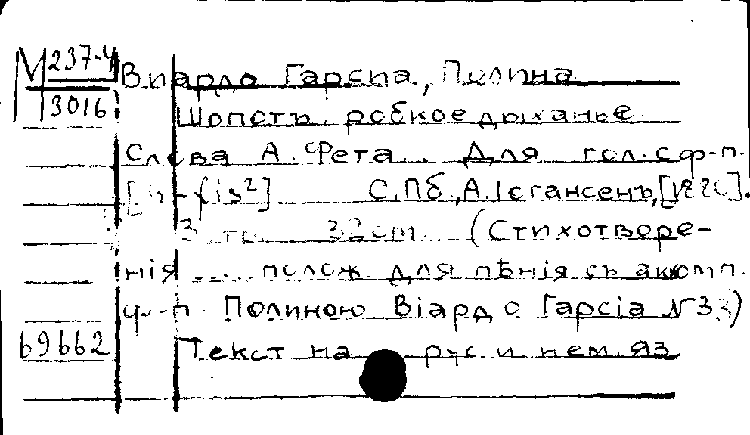 М 237-4
3016
Виардо Гарсиа, Полина
Шопотъ робкое дыханье
Слова А. Фета. Для гол. с ф-п.
С.Пб., А. Іогансенъ,
32 cm. (Стихотворе-
нія .... полож. для пѣнія съ акомп.
ф-п. Полиною Віардо Гарсіа № 33)
69662
Текст на рус. и нем. яз